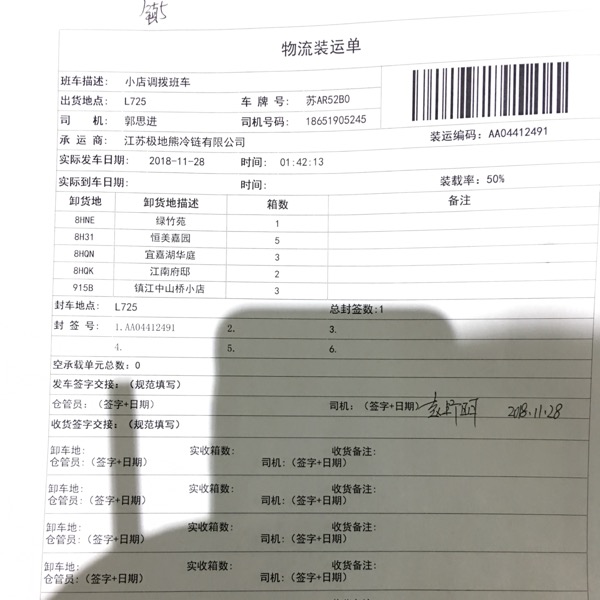 镇5
物流装运单
班车描述： 小店调拨班车
出货地点： L725 车 牌 号： 苏AR52B0
司 机： 郭思进 司机号码： 18651905245
承 运 商： 江苏极地熊冷链有限公司 装运编码：AA04412491
实际发车日期： 2018-11-28 时间： 01:42:13
实际到车日期： 时间： 装载率：50%
卸货地 卸货地描述 箱数 备注
8HNE 绿竹苑 1
8H31 恒美嘉园 5
8HQN 宜嘉湖华庭 3
8HQK 江南府邸 2
915B 镇江中山桥小店 3
封车地点： L725 总封签数:1
封 签 号： 1.AA04412491 2. 3.
4. 5. 6.
空承载单元总数：0
发车签字交接：（规范填写）
仓管员：（签字+日期） 司机：（签字+日期） 2018.11.28
收货签字交接：（规范填写）
卸车地： 实收箱数： 收货备注：
仓管员：（签字+日期） 司机：（签字+日期）
卸车地： 实收箱数： 收货备注：
仓管员：（签字+日期） 司机：（签字+日期）
卸车地： 实收箱数： 收货备注：
仓管员：（签字+日期） 司机：（签字+日期）
卸车地： 实收箱数： 收货备注：
仓管员：（签字+日期） 司机：（签字+日期）